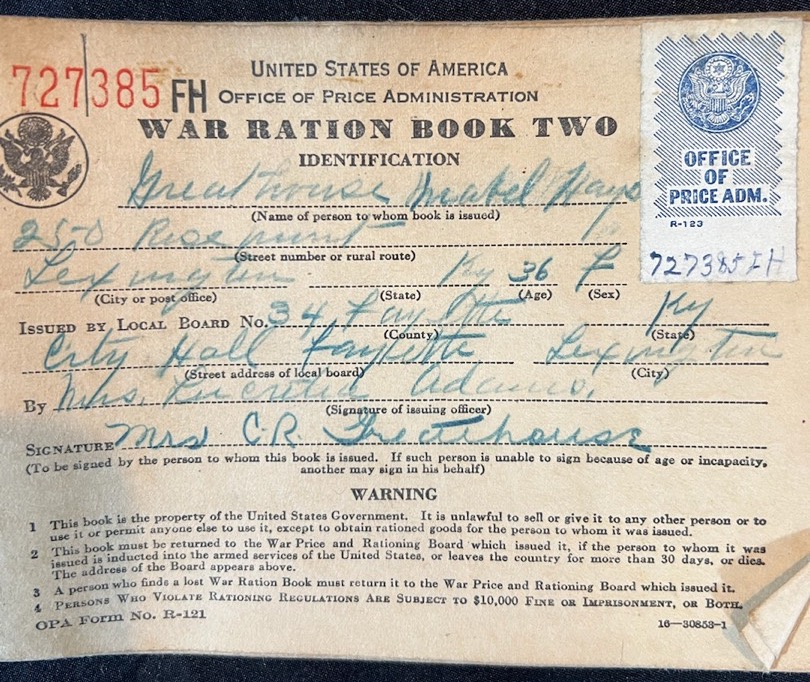 727385 FH
UNITED STATES OF AMERICA
OFFICE OF PRICE ADMINISTRATION
WAR RATION BOOK TWO
IDENTIFICATION
OFFICE
OF
PRICE ADM.
R-123
727385 FH
Greathouse Mabel Hays
(Name of person to whom book is issued)
250 Rosemont
(Street number or rural route)
Lexington Ky 36 F
(City or post office) (State) (Age) (Sex)
ISSUED BY LOCAL BOARD No. 34, Fayette Ky
(County) (State)
City Hall Fayette Lexington
(Street address of local board) (City)
By Mrs. Lucretia Adams.
(Signature of issuing officer)
SIGNATURE Mrs C R Greathouse
(To be signed by the person to whom this book is issued. If such person is unable to sign because of age or incapacity,
another may sign in his behalf)
WARNING
1 This book is the property of the United States Government. It is unlawful to sell or give it to any other person or to
use it or permit anyone else to use it, except to obtain rationed goods for the person to whom it was issued.
2 This book must be returned to the War Price and Rationing Board which issued it, if the person to whom it was
issued is inducted into the armed services of the United States, or leaves the country for more than 30 days, or dies.
The address of the Board appears above.
3 A person who finds a lost War Ration Book must return it to the War Price and Rationing Board which issued it.
4 PERSONS WHO VIOLATE RATIONING REGULATIONS ARE SUBJECT TO $10,000 FINE OR IMPRISONMENT, OR BOTH.
OPA Form No. R-121 16—30853-1